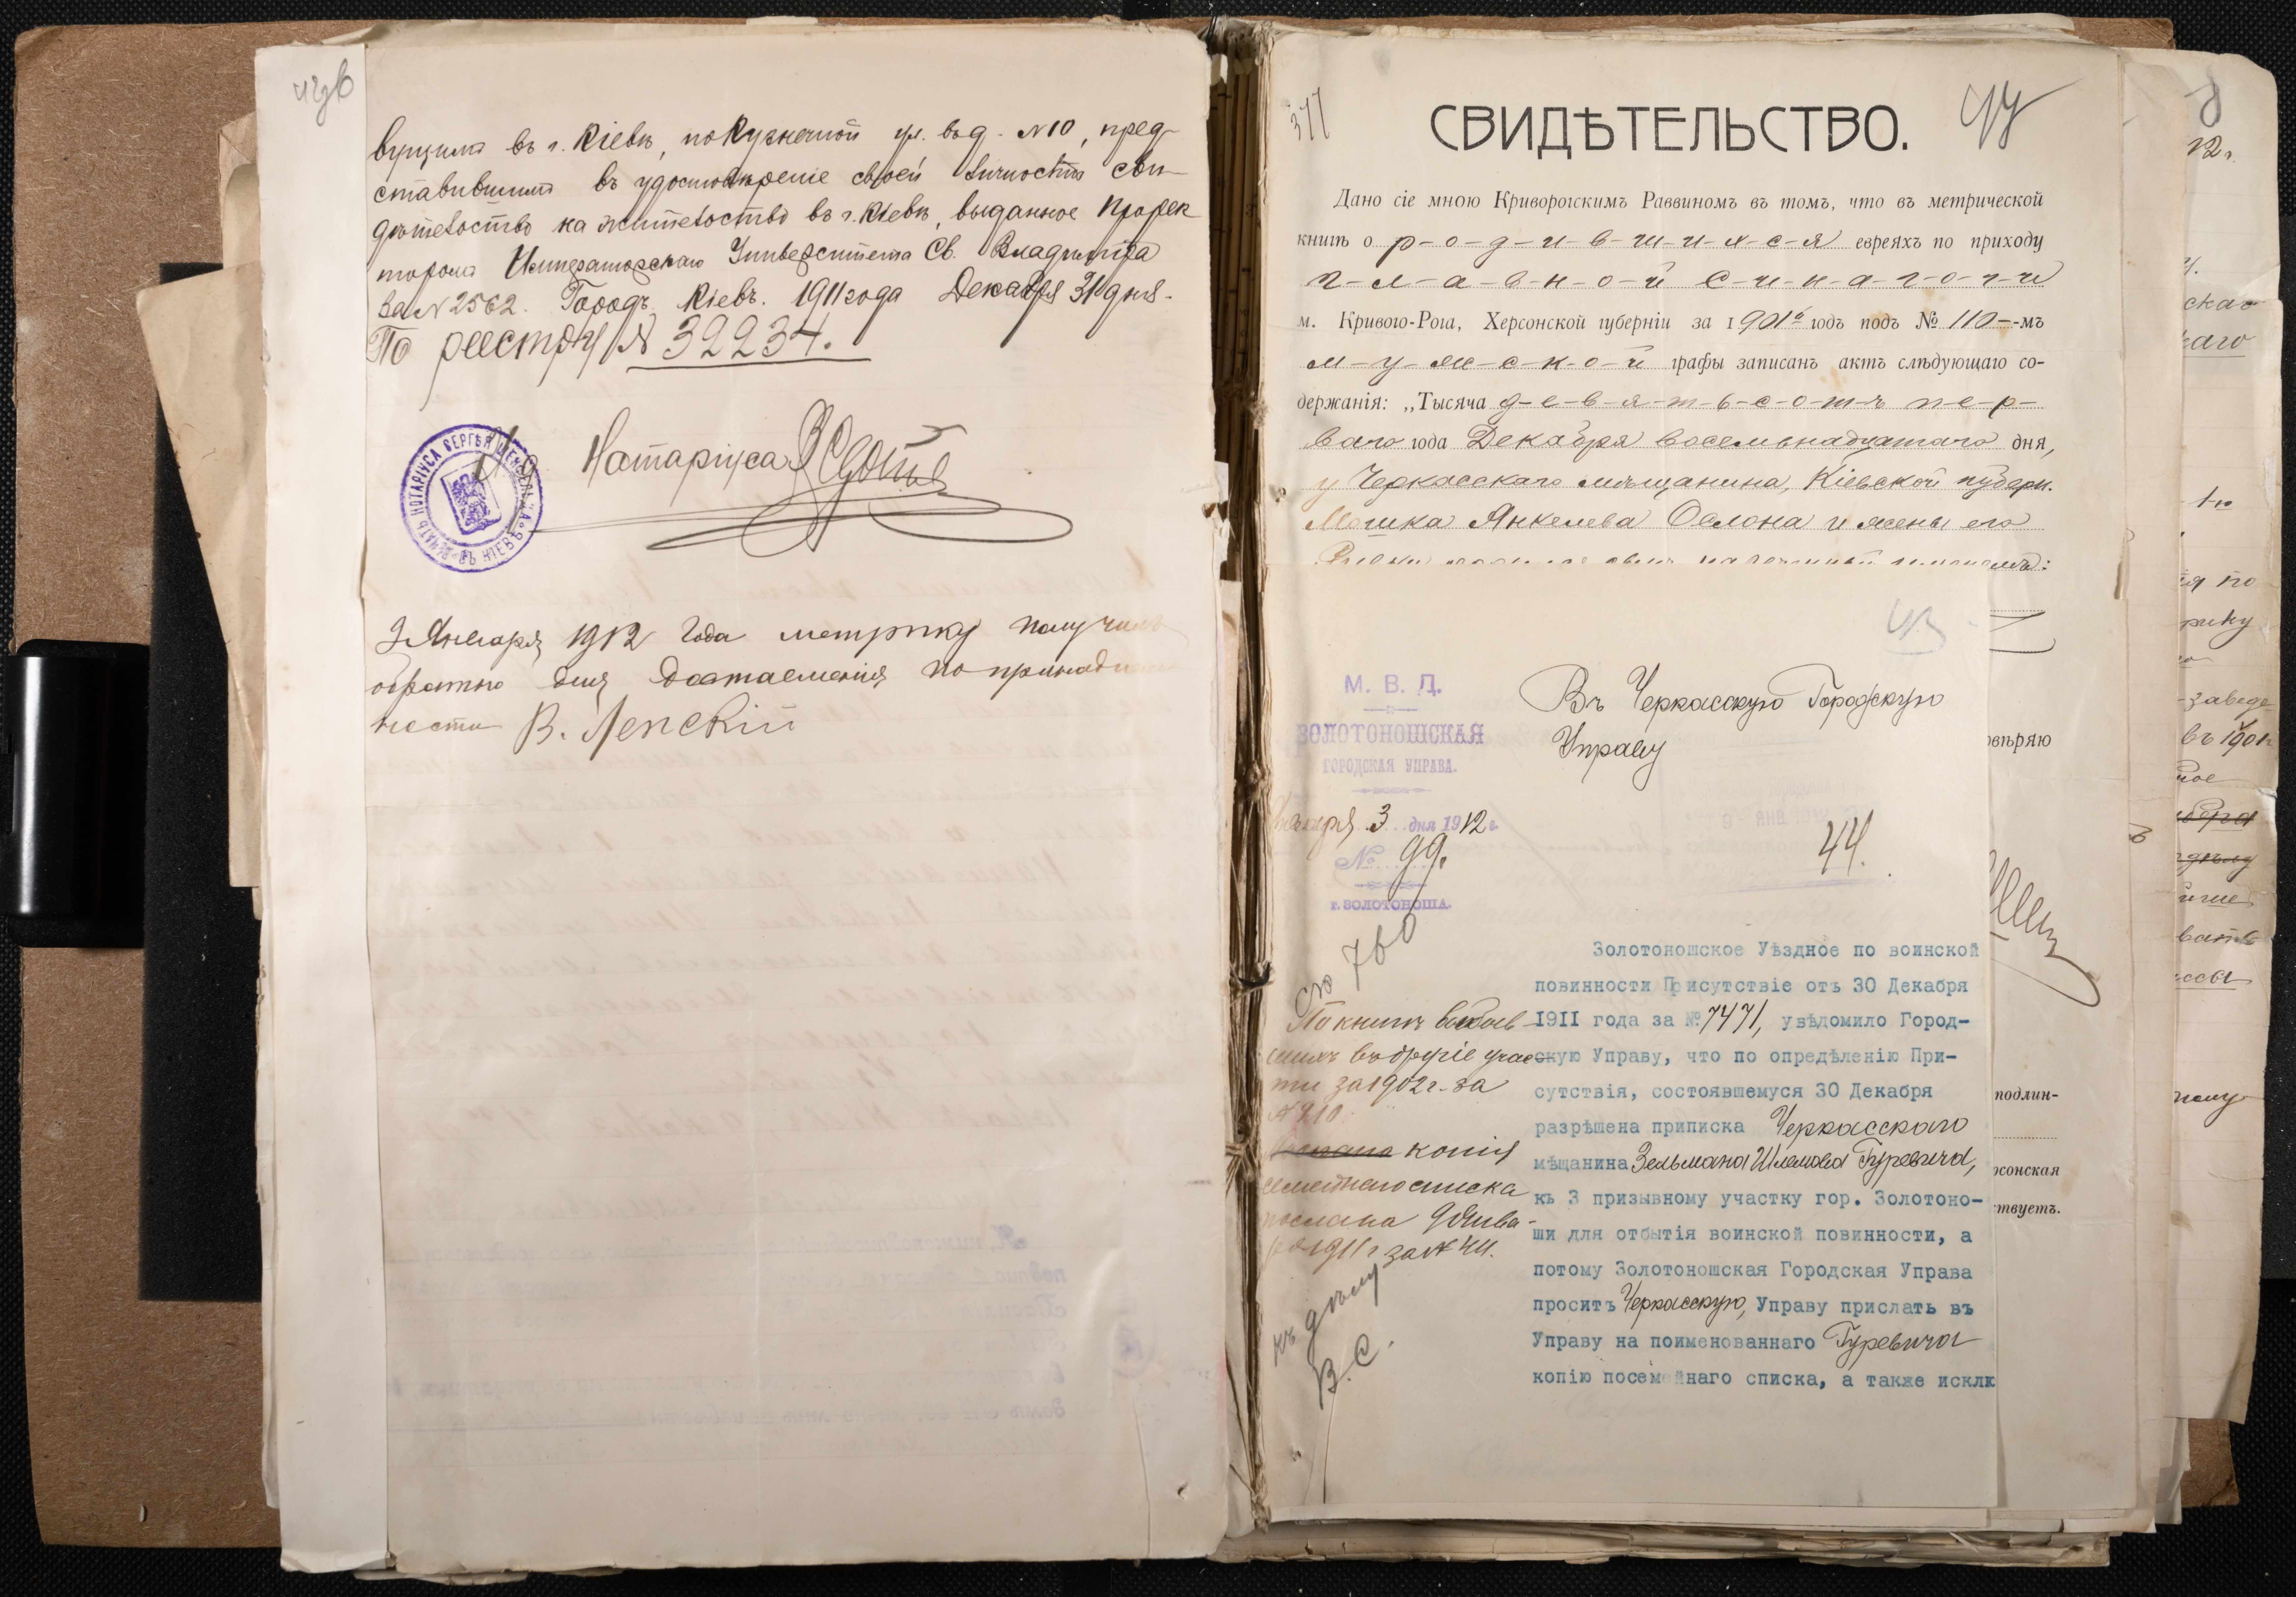 вущимъ въ г. Кіевѣ, по Кузнечной ул. въ д. №10, пред-
ставившимъ въ удостовѣреніе своей личности сви-
дѣтельство на жительство въ г. Кіевѣ, выданное Прорек-
торомъ Императорскаго Университета Св. Владиміра
за №2562. Городъ Кіевъ. 1911 года Декабря 31 дня.
По реестру № 32234.
Нотаріуса
ПЕЧАТЬ НОТАРІУСА СЕРГѢЯ ВЪ КІЕВѢ
Января 1912 года метрику получилъ
обратно для доставленія по принадлеж
ности В. Ленскій
377
СВИДѢТЕЛЬСТВО.
47
Дано сіе мною Криворогскимъ Раввиномъ въ томъ, что въ метрической
книгѣ о р-о-д-и-в-ш-и-х-с-я евреяхъ по приходу
г-л-а-в-н-о-й с-и-н-а-г-о-г-и
м. Кривого-Рога, Херсонской губерніи за 1901й годъ подъ № 110-мъ
м-у-ж-с-к-о-й графы записанъ актъ слѣдующаго со-
держанія: „Тысяча д-е-в-я-т-ь-с-о-т-ъ п-е-р-
ваго года Декабря восемьнадцатаго дня,
у Черкасскаго мѣщанина, Кіевской губерн.
Мошка Янкелева Ослона и жены его
М. В. Д.
ЗОЛОТОНОШСКАЯ
ГОРОДСКАЯ УПРАВА.
Января 3 дня 1912 г.
№ 99.
г. ЗОЛОТОНОША.
Въ Черкасскую Городскую
Управу
44.
760
По книгѣ
за 1902 г. за
№ 210
копія
семейнаго списка
послана
1911 г. за № 44.
къ дѣлу
В. С.
Золотоношское Уѣздное по воинской
повинности Присутствіе отъ 30 Декабря
1911 года за № 7471, увѣдомило Город-
скую Управу, что по опредѣленію При-
сутствія, состоявшемуся 30 Декабря
разрѣшена приписка Черкасскаго
мѣщанина Зельмана Шлемова Гуревича,
къ 3 призывному участку гор. Золотоно-
ши для отбытія воинской повинности, а
потому Золотоношская Городская Управа
проситъ Черкасскую, Управу прислать въ
Управу на поименованнаго Гуревича
копію посемейнаго списка, а также исклю
овѣряю
подлин-
рсонская
ствуетъ.
12 г.
скаго
каго
1-ю
ія по
-заведе
въ 1901